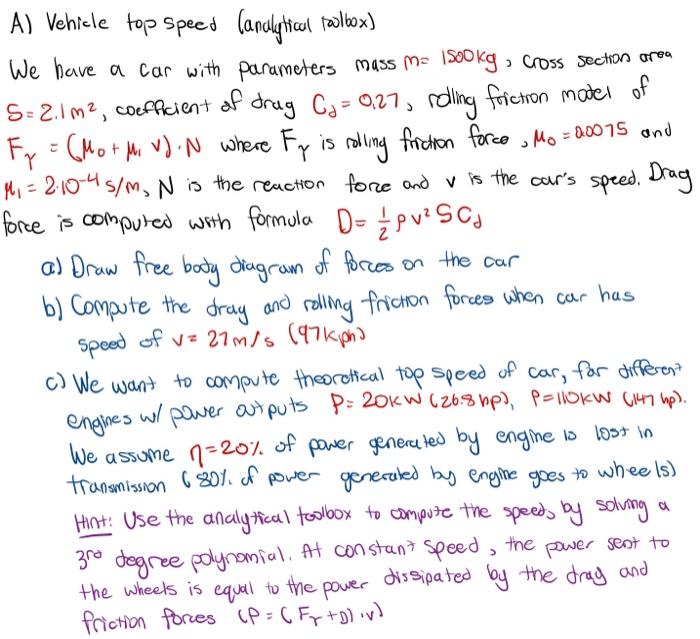 A) Vehicle top speed (analytical toolbox)
We have a car with parameters mass m= 1500kg, cross section area
S=2.1m², coefficient of drag C_d=0,27, rolling friction model of
F_r = (μ₀ + μ₁ v)·N where F_r is rolling friction force, μ₀ = 0.0075 and
μ₁ = 2·10⁻⁴ s/m, N is the reaction force and v is the car's speed. Drag
force is computed with formula D= 1/2 ρv² SC_d
a) Draw free body diagram of forces on the car
b) Compute the drag and rolling friction forces when car has
speed of v= 27m/s (97kph)
c) We want to compute theoretical top speed of car, for different
engines w/ power outputs P= 20kW (26.8hp), P=110kW (147 hp).
We assume η=20% of power generated by engine is lost in
transmission (80% of power generated by engine goes to wheels)
Hint: Use the analytical toolbox to compute the speed, by solving a
3rd degree polynomial. At constant speed, the power sent to
the wheels is equal to the power dissipated by the drag and
friction forces (P = (F_r + D)·v)